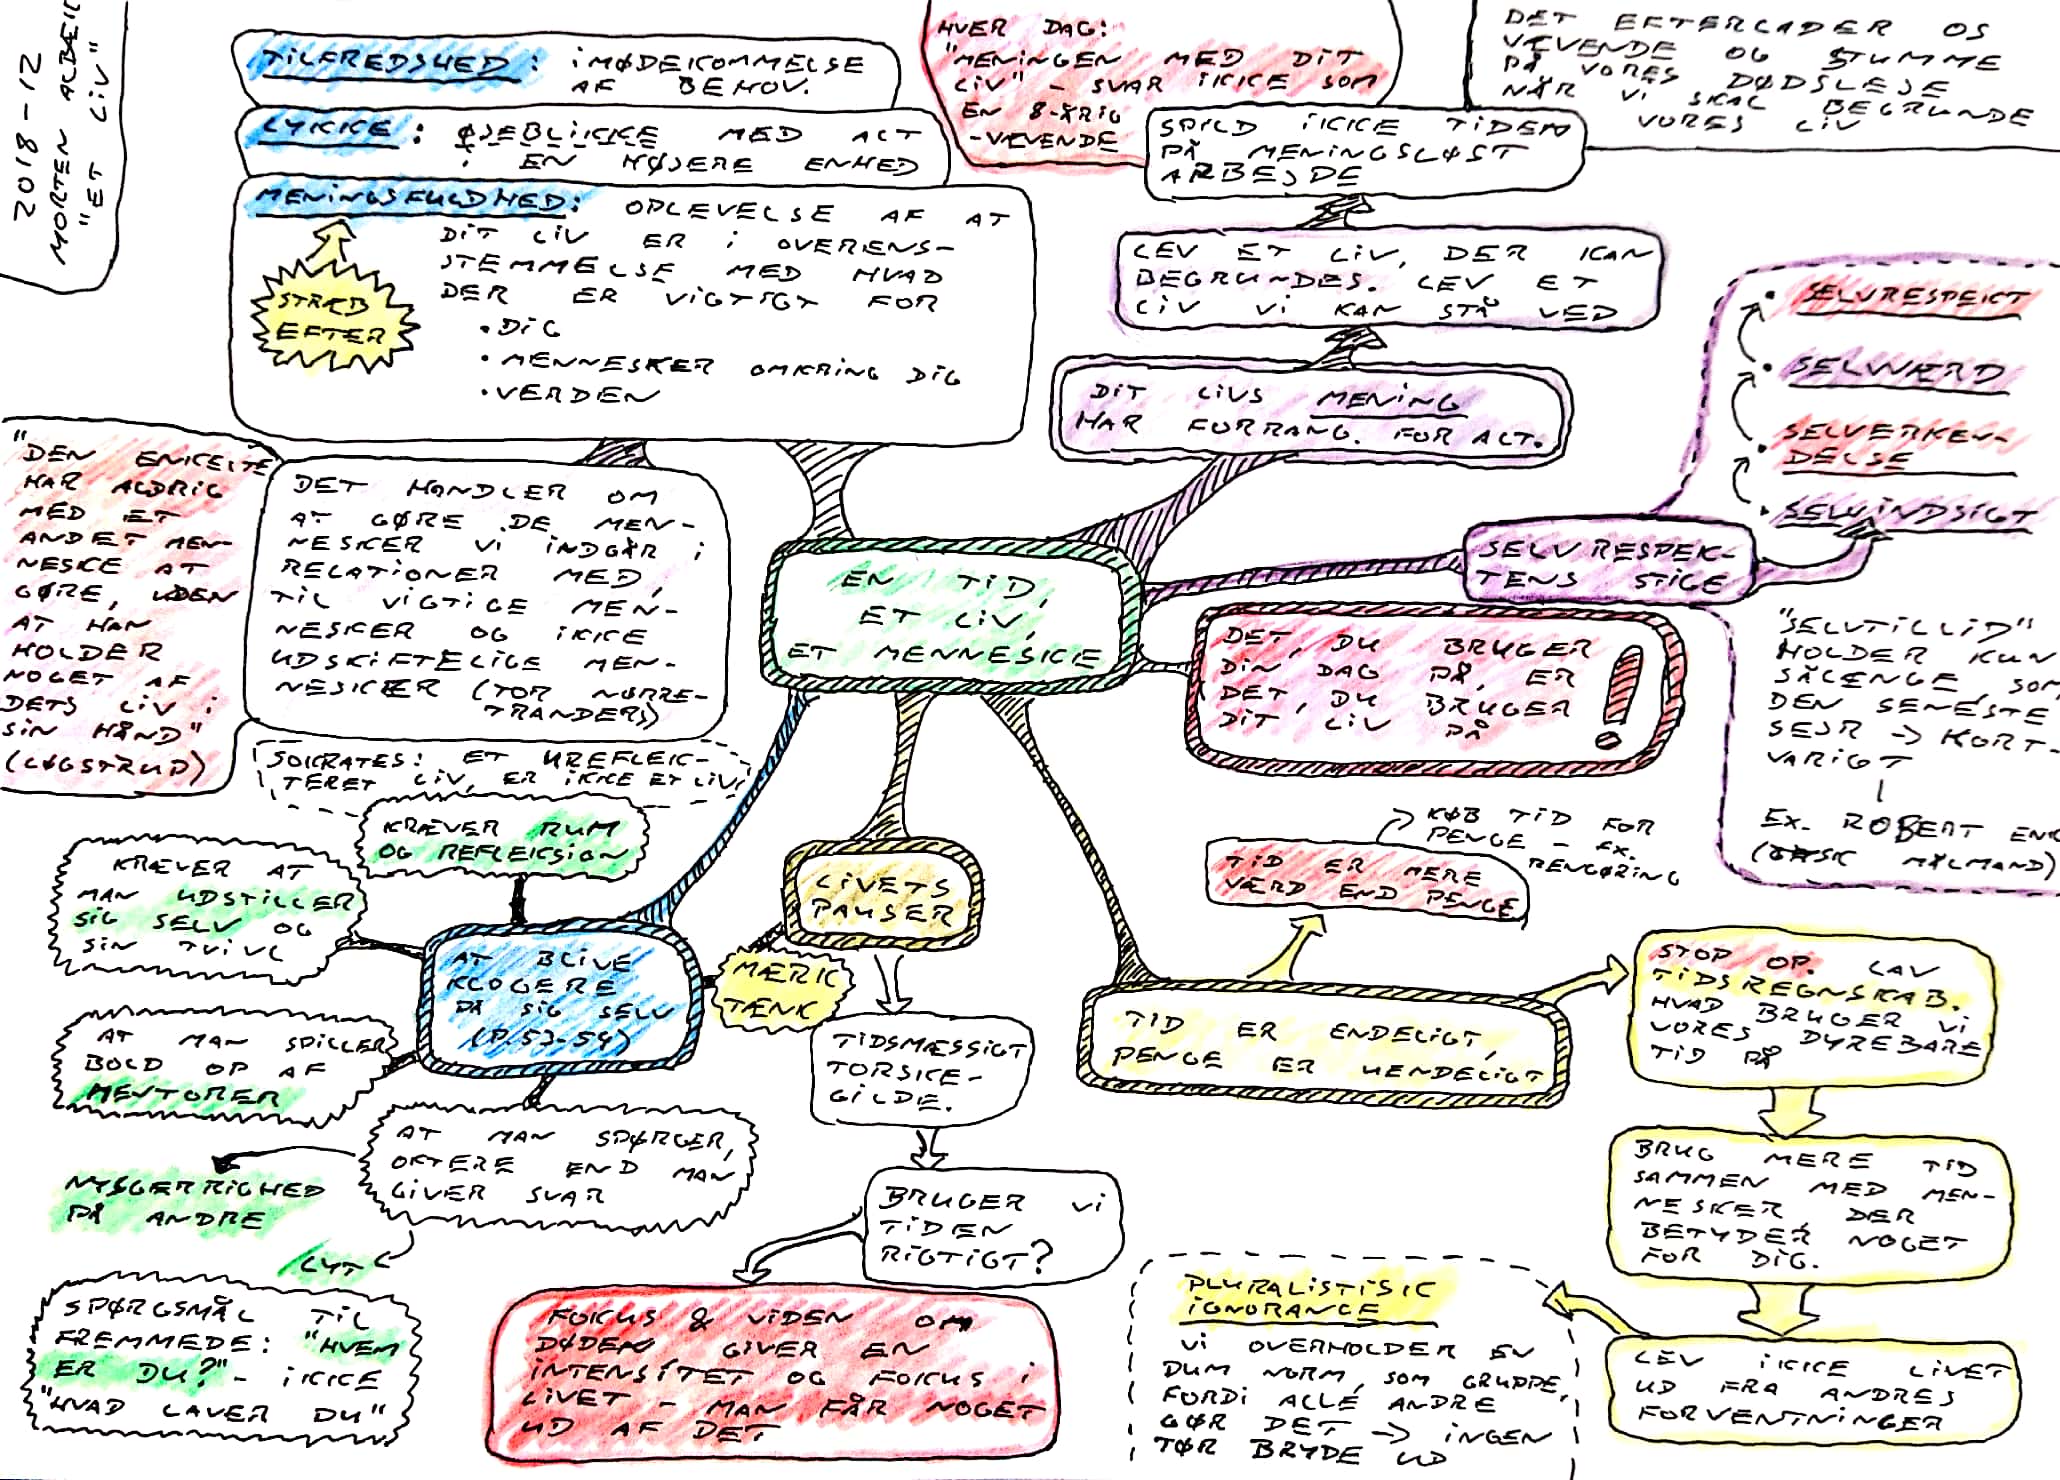 2018-12
MORTEN ALBÆK
"ET LIV"
TILFREDSHED: IMØDEKOMMELSE
AF BEHOV.
LYKKE: ØJEBLIKKE MED ALT
I EN HØJERE ENHED
MENINGSFULDHED: OPLEVELSE AF AT
DIT LIV ER I OVERENS-
STEMMELSE MED HVAD
DER ER VIGTIGT FOR
• DIG
• MENNESKER OMKRING DIG
• VERDEN
STRÆB
EFTER
HVER DAG:
"MENINGEN MED DIT
LIV" - SVAR IKKE SOM
EN 8-ÅRIG
- VÆVENDE
DET EFTERLADER OS
VÆVENDE OG STUMME
PÅ VORES DØDSLEJE
NÅR VI SKAL BEGRUNDE
VORES LIV
SPILD IKKE TIDEN
PÅ MENINGSLØST
ARBEJDE
LEV ET LIV, DER KAN
BEGRUNDES. LEV ET
LIV VI KAN STÅ VED
DIT LIVS MENING
HAR FORRANG. FOR ALT.
• SELVRESPEKT
• SELVVÆRD
• SELVERKEN-
DELSE
• SELVINDSIGT
SELVRESPEK-
TENS STIGE
"SELVTILLID"
HOLDER KUN
SÅLÆNGE SOM
DEN SENESTE
SEJR -> KORT-
VARIGT
EX. ROBERT ENK
(TYSK MÅLMAND)
"DEN ENKELTE
HAR ALDRIG
MED ET
ANDET MEN-
NESKE AT
GØRE, UDEN
AT HAN
HOLDER
NOGET AF
DETS LIV I
SIN HÅND"
(LØGSTRUP)
DET HANDLER OM
AT GØRE DE MEN-
NESKER VI INDGÅR I
RELATIONER MED,
TIL VIGTIGE MEN-
NESKER OG IKKE
UDSKIFTELIGE MEN-
NESKER (TOR NØRRE-
TRANDERS)
SOKRATES: ET UREFLEK-
TERET LIV, ER IKKE ET LIV
EN TID,
ET LIV,
ET MENNESKE
DET, DU BRUGER
DIN DAG PÅ, ER
DET, DU BRUGER
DIT LIV PÅ
!
KRÆVER RUM
OG REFLEKSION
KRÆVER AT
MAN UDSTILLER
SIG SELV OG
SIN TVIVL
AT BLIVE
KLOGERE
PÅ SIG SELV
(P. 53-54)
AT MAN SPILLER
BOLD OP AF
MENTORER
AT MAN SPØRGER,
OFTERE END MAN
GIVER SVAR
NYSGERRIGHED
PÅ ANDRE
LYT
SPØRGSMÅL TIL
FREMMEDE: "HVEM
ER DU?" - IKKE
"HVAD LAVER DU"
LIVETS
PAUSER
MÆRK
TÆNK
TIDSMÆSSIGT
TORSKE-
GILDE.
BRUGER VI
TIDEN
RIGTIGT?
FOKUS & VIDEN OM
DØDEN GIVER EN
INTENSITET OG FOKUS I
LIVET - MAN FÅR NOGET
UD AF DET
KØB TID FOR
PENGE - EX.
RENGØRING
TID ER MERE
VÆRD END PENGE
TID ER ENDELIGT,
PENGE ER UENDELIGT
STOP OP. LAV
TIDSREGNSKAB.
HVAD BRUGER VI
VORES DYREBARE
TID PÅ
BRUG MERE TID
SAMMEN MED MEN-
NESKER DER
BETYDER NOGET
FOR DIG.
LEV IKKE LIVET
UD FRA ANDRES
FORVENTNINGER
PLURALISTISIC
IGNORANCE
VI OVERHOLDER EN
DUM NORM, SOM GRUPPE,
FORDI ALLE ANDRE
GØR DET -> INGEN
TØR BRYDE UD